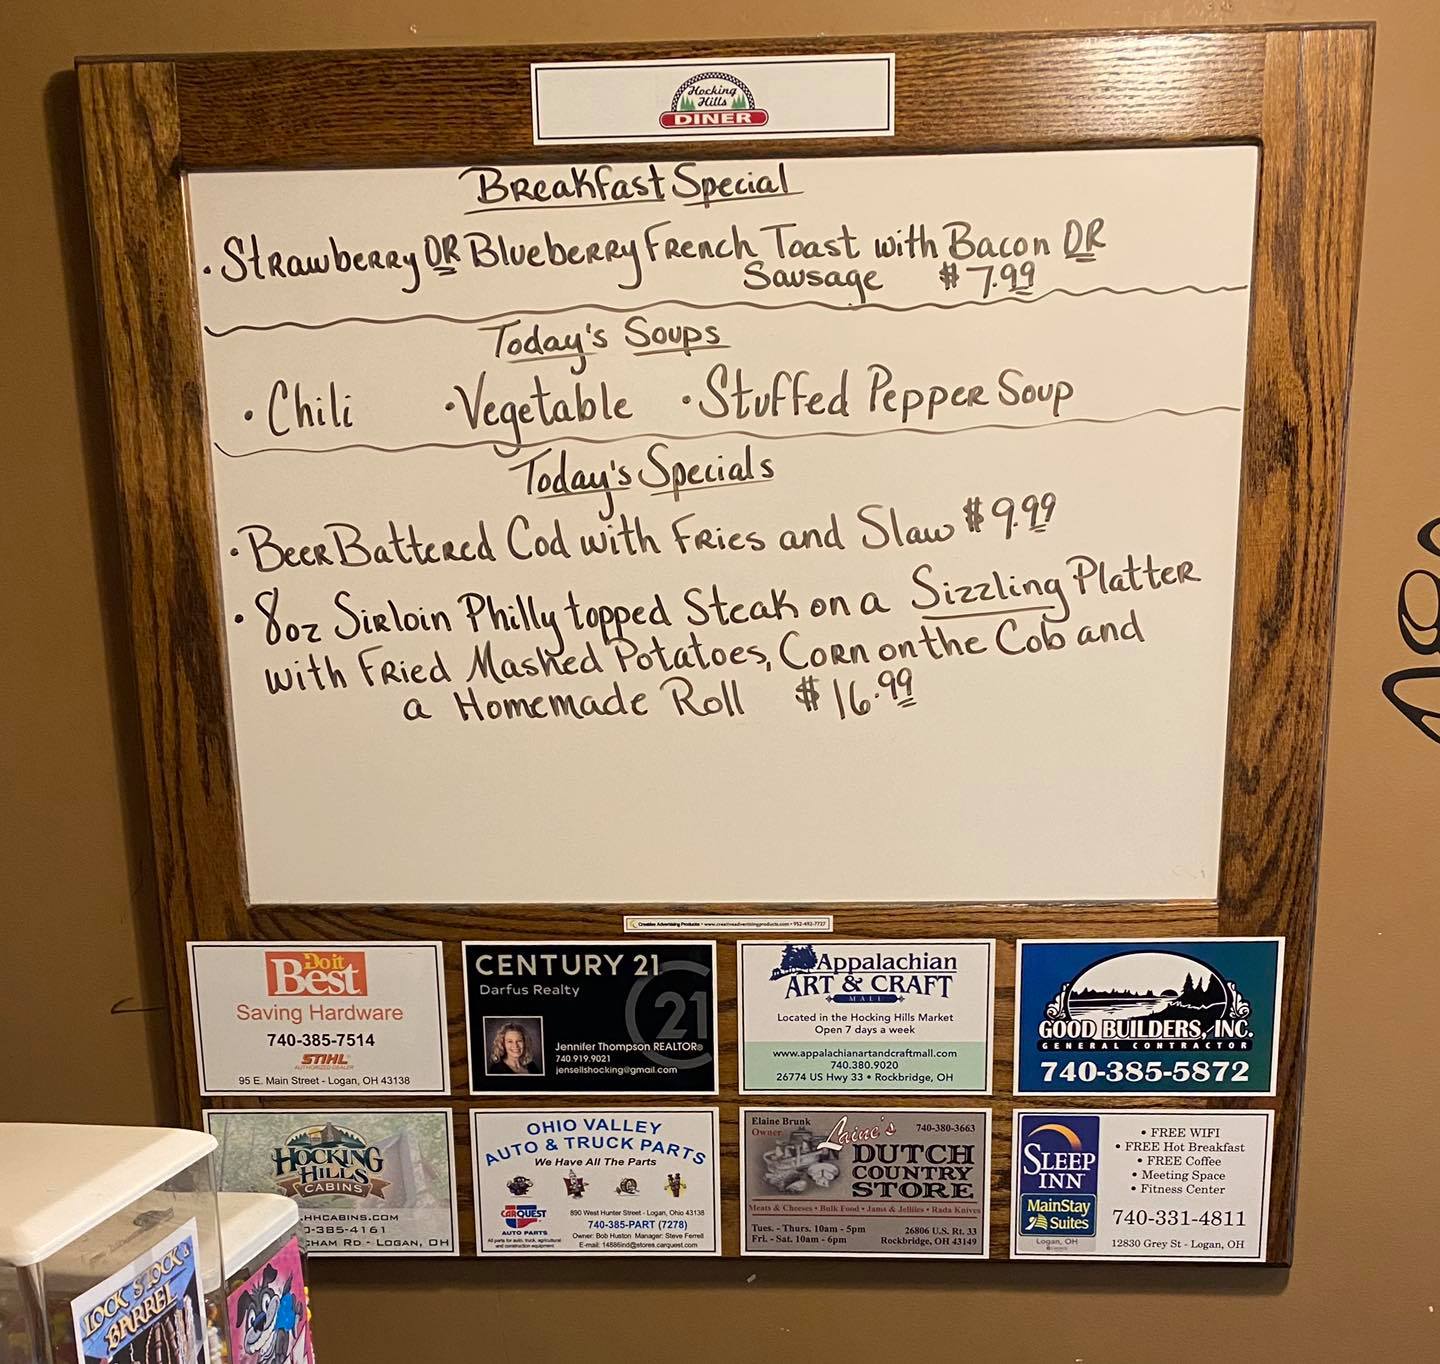 Hocking
Hills
DINER
Breakfast Special
• Strawberry OR Blueberry French Toast with Bacon OR
Sausage $7.99
Today's Soups
• Chili • Vegetable • Stuffed Pepper Soup
Today's Specials
• Beer Battered Cod with Fries and Slaw $9.99
• 8oz Sirloin Philly topped Steak on a Sizzling Platter
with Fried Mashed Potatoes, Corn on the Cob and
a Homemade Roll $16.99
Creative Advertising Products • www.creativeadvertisingproducts.com • 952-492-7727
Do it
Best
Saving Hardware
740-385-7514
STIHL
AUTHORIZED DEALER
95 E. Main Street - Logan, OH 43138
CENTURY 21
Darfus Realty
C21
Jennifer Thompson REALTOR®
740.919.9021
jensellshocking@gmail.com
Appalachian
ART & CRAFT
MALL
Located in the Hocking Hills Market
Open 7 days a week
www.appalachianartandcraftmall.com
740.380.9020
26774 US Hwy 33 • Rockbridge, OH
GOOD BUILDERS, INC.
GENERAL CONTRACTOR
740-385-5872
HOCKING
HILLS
CABINS
.HHCABINS.COM
0-385-4161
CHAM RD - LOGAN, OH
OHIO VALLEY
AUTO & TRUCK PARTS
We Have All The Parts
CARQUEST
AUTO PARTS
All parts for auto, truck, agricultural
and construction equipment
890 West Hunter Street - Logan, Ohio 43138
740-385-PART (7278)
Owner: Bob Huston Manager: Steve Ferrell
E-mail: 14886ind@stores.carquest.com
Elaine Brunk
Owner
740-380-3663
Laine's
DUTCH
COUNTRY
STORE
Meats & Cheeses • Bulk Food • Jams & Jellies • Rada Knives
Tues. - Thurs. 10am - 5pm
Fri. - Sat. 10am - 6pm
26806 U.S. Rt. 33
Rockbridge, OH 43149
SLEEP
INN
MainStay
Suites
Logan, OH
• FREE WIFI
• FREE Hot Breakfast
• FREE Coffee
• Meeting Space
• Fitness Center
740-331-4811
12830 Grey St - Logan, OH
LOCK STOCK &
BARREL